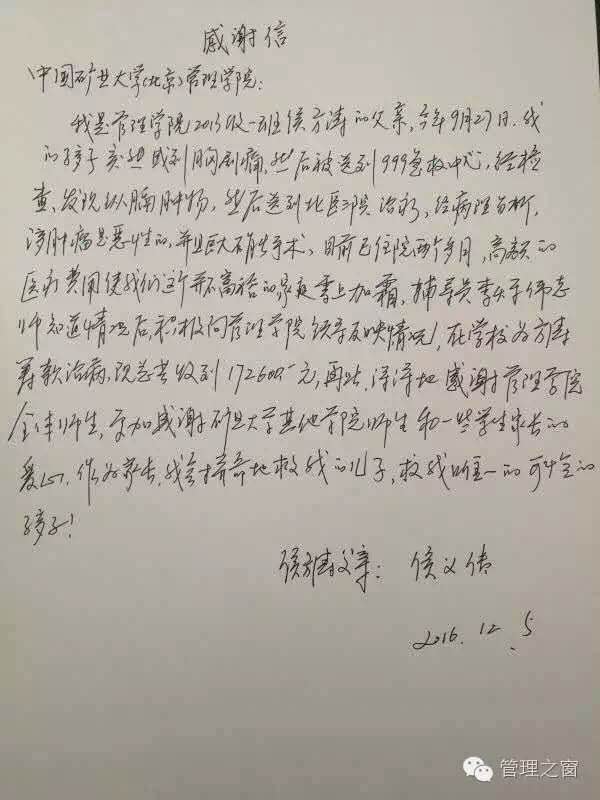 感谢信
中国矿业大学(北京)管理学院:
我是管理学院2013级一班侯方涛的父亲,今年9月27日,我
的孩子突然感到胸剧痛,然后被送到999急救中心,经检
查,发现纵膈肿物,然后送到北医三院治疗,经病理分析,
该肿瘤是恶性的,并且巨大,目前已住院两个多月,高额的
医疗费用使我们这个并不富裕的家庭雪上加霜,辅导员李 老
师知道情况后,积极向管理学院领导反映情况,在学校为方涛
筹款治病,现总共收到172600 元,再此,深深地感谢管理学院
全体师生,更加感谢矿业大学其他学院师生和一些学生家长的
爱心,作为家长,我会拼命地救我的儿子,救我唯一的可怜的
孩子!
侯方涛父亲: 侯义
2016.12.5
管理之窗